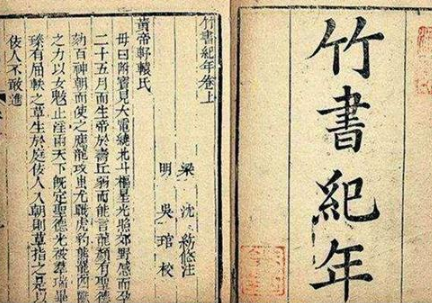 竹書紀年
竹書紀年卷上
梁 沈約修注
明 吳琯校
黃帝軒轅氏
母曰附寶見大電繞北斗樞星光照郊野感而孕
二十五月而生帝於壽丘弱而能言龍顏有聖德
劾百神朝而使之應龍攻蚩尤戰虎豹熊羆四獸
之力以女魃止淫雨天下既定聖德光被羣瑞畢
臻有屈軼之草生於庭佞人入朝則草指之是以
佞人不敢進